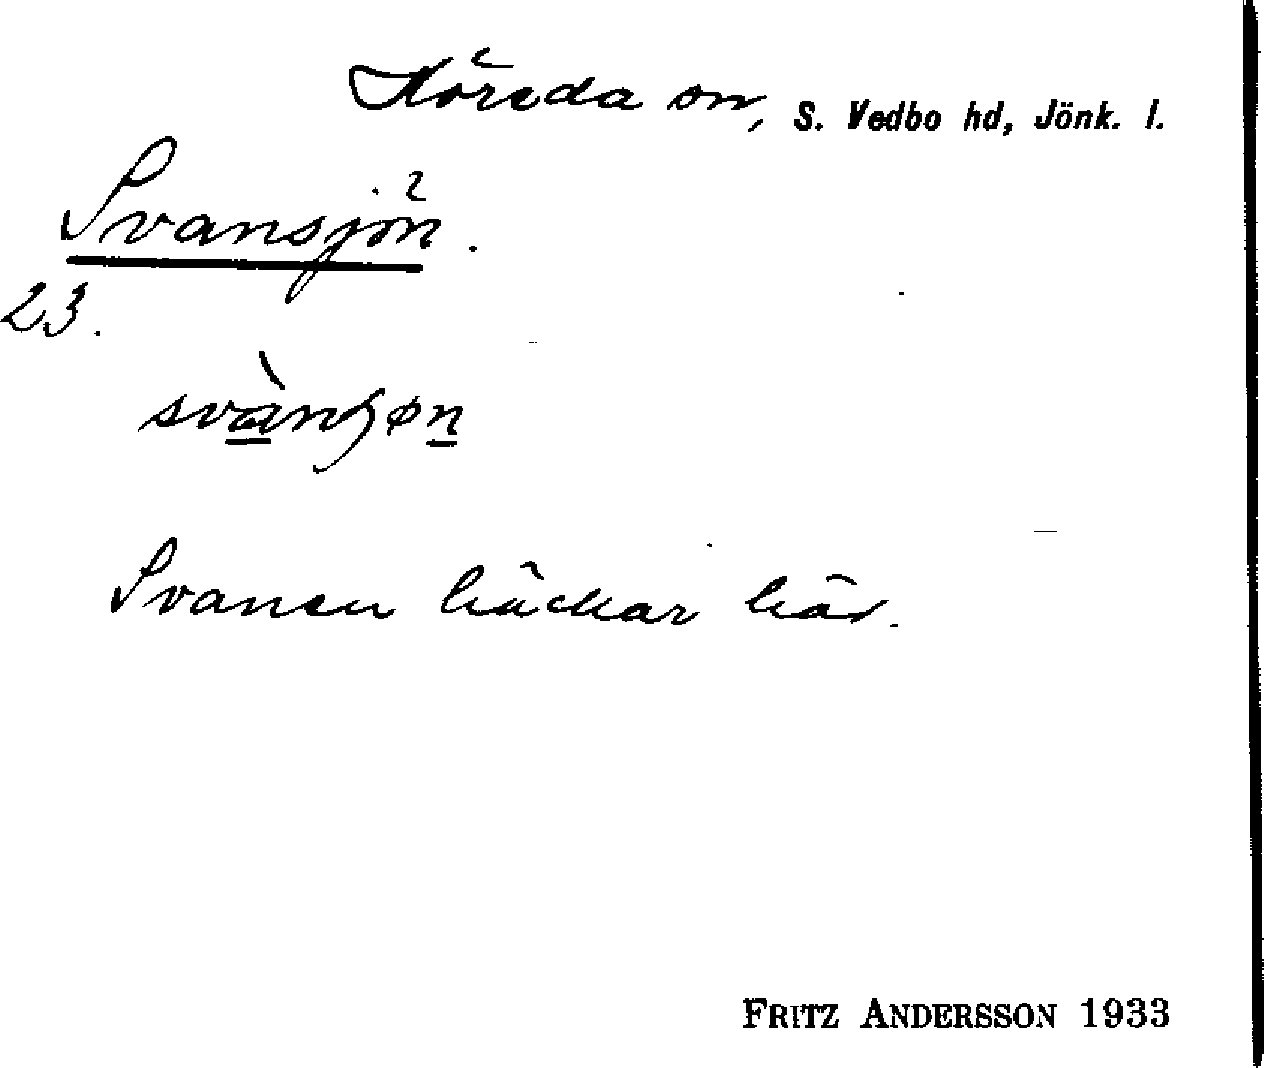 Höreda sn, S. Vedbo hd, Jönk. l.
Svansjön.
23.
Svanen häckar här.
FRITZ ANDERSSON 1933